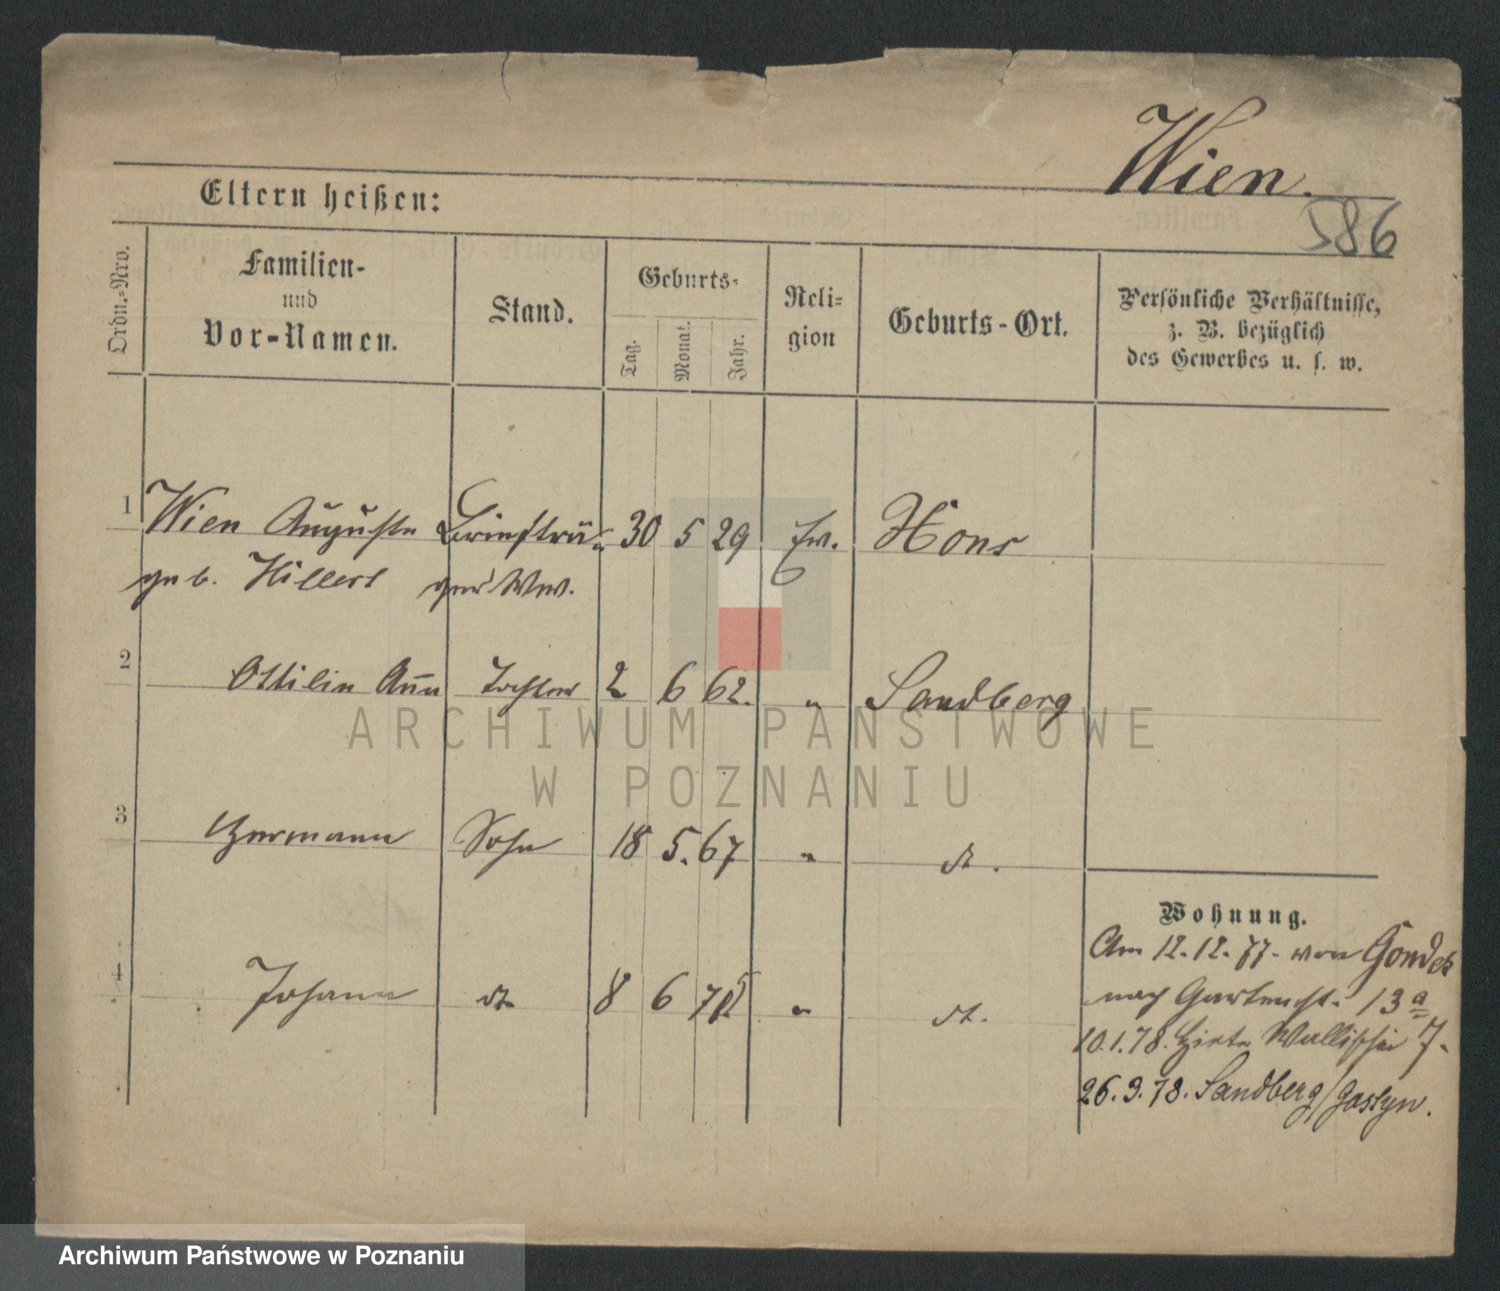 Wien.
586
Eltern heißen:
Ordn.-Nro.
Familien-
und
Vor-Namen.
Stand.
Geburts-
Tag.
Monat.
Jahr.
Reli-
gion
Geburts-Ort.
Persönliche Verhältnisse,
z. B. bezüglich
des Gewerbes u. s. w.
1 Wien Auguste Briefträ- 30 5 29 Ev.
geb. Hillert ger Ww.
2 Ottilie Ann Tochter 2 6 62. " Sandberg
3 Hermann Sohn 18 5. 67 " dt.
4 Johann dt 8 6 " dt.
Wohnung.
Am 12.12.77. von
nach Gartenst. 13a
10.1.78. Wallischei 7.
26.9.78. Sandberg/Gostyn.
ARCHIWUM PAŃSTWOWE
W POZNANIU
Archiwum Państwowe w Poznaniu